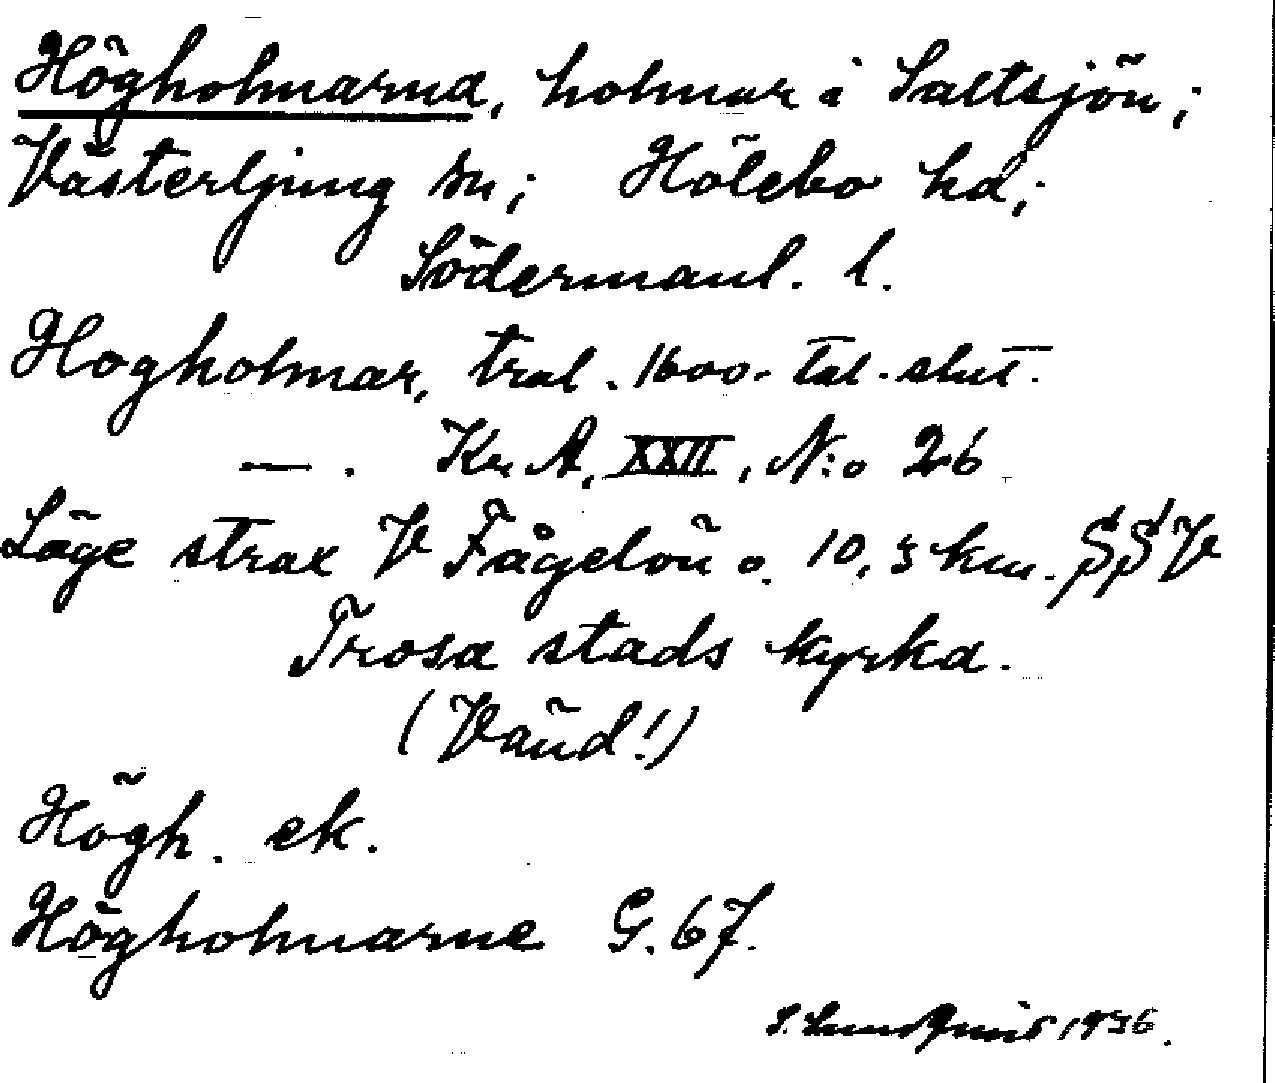 Högholmarna, holmar i Saltsjön;
Västerljung sn; Hölebo hd;
Södermanl. l.
Hogholmar, trol. 1600-tal-slut.
—. Kr. A, XXII, N:o 26
Läge strax V Fågelön o. 10,5 km. SSV
Trosa stads kyrka.
(Vänd!)
Högh. ek.
Högholmarne G. 67.
S. Lundqvist 1936.